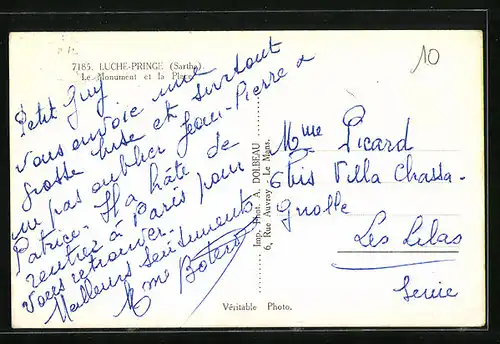 10
7185. LUCHE-PRINGE (Sarthe)
Le Monument et la Place
Petit Guy
vous envoie une
grosse bise et surtout
ne pas oublier Jean-Pierre &
Patrice. Il a hâte de
rentrer à Paris pour
vous retrouver.
Meilleurs Sentiments
Mme Botero
Imp. Phot. A. DOLBEAU
6, Rue Auvray - Le Mans.
Mme Picard
6 bis Villa Chassa-
gnolle
Les Lilas
Seine
Véritable Photo.